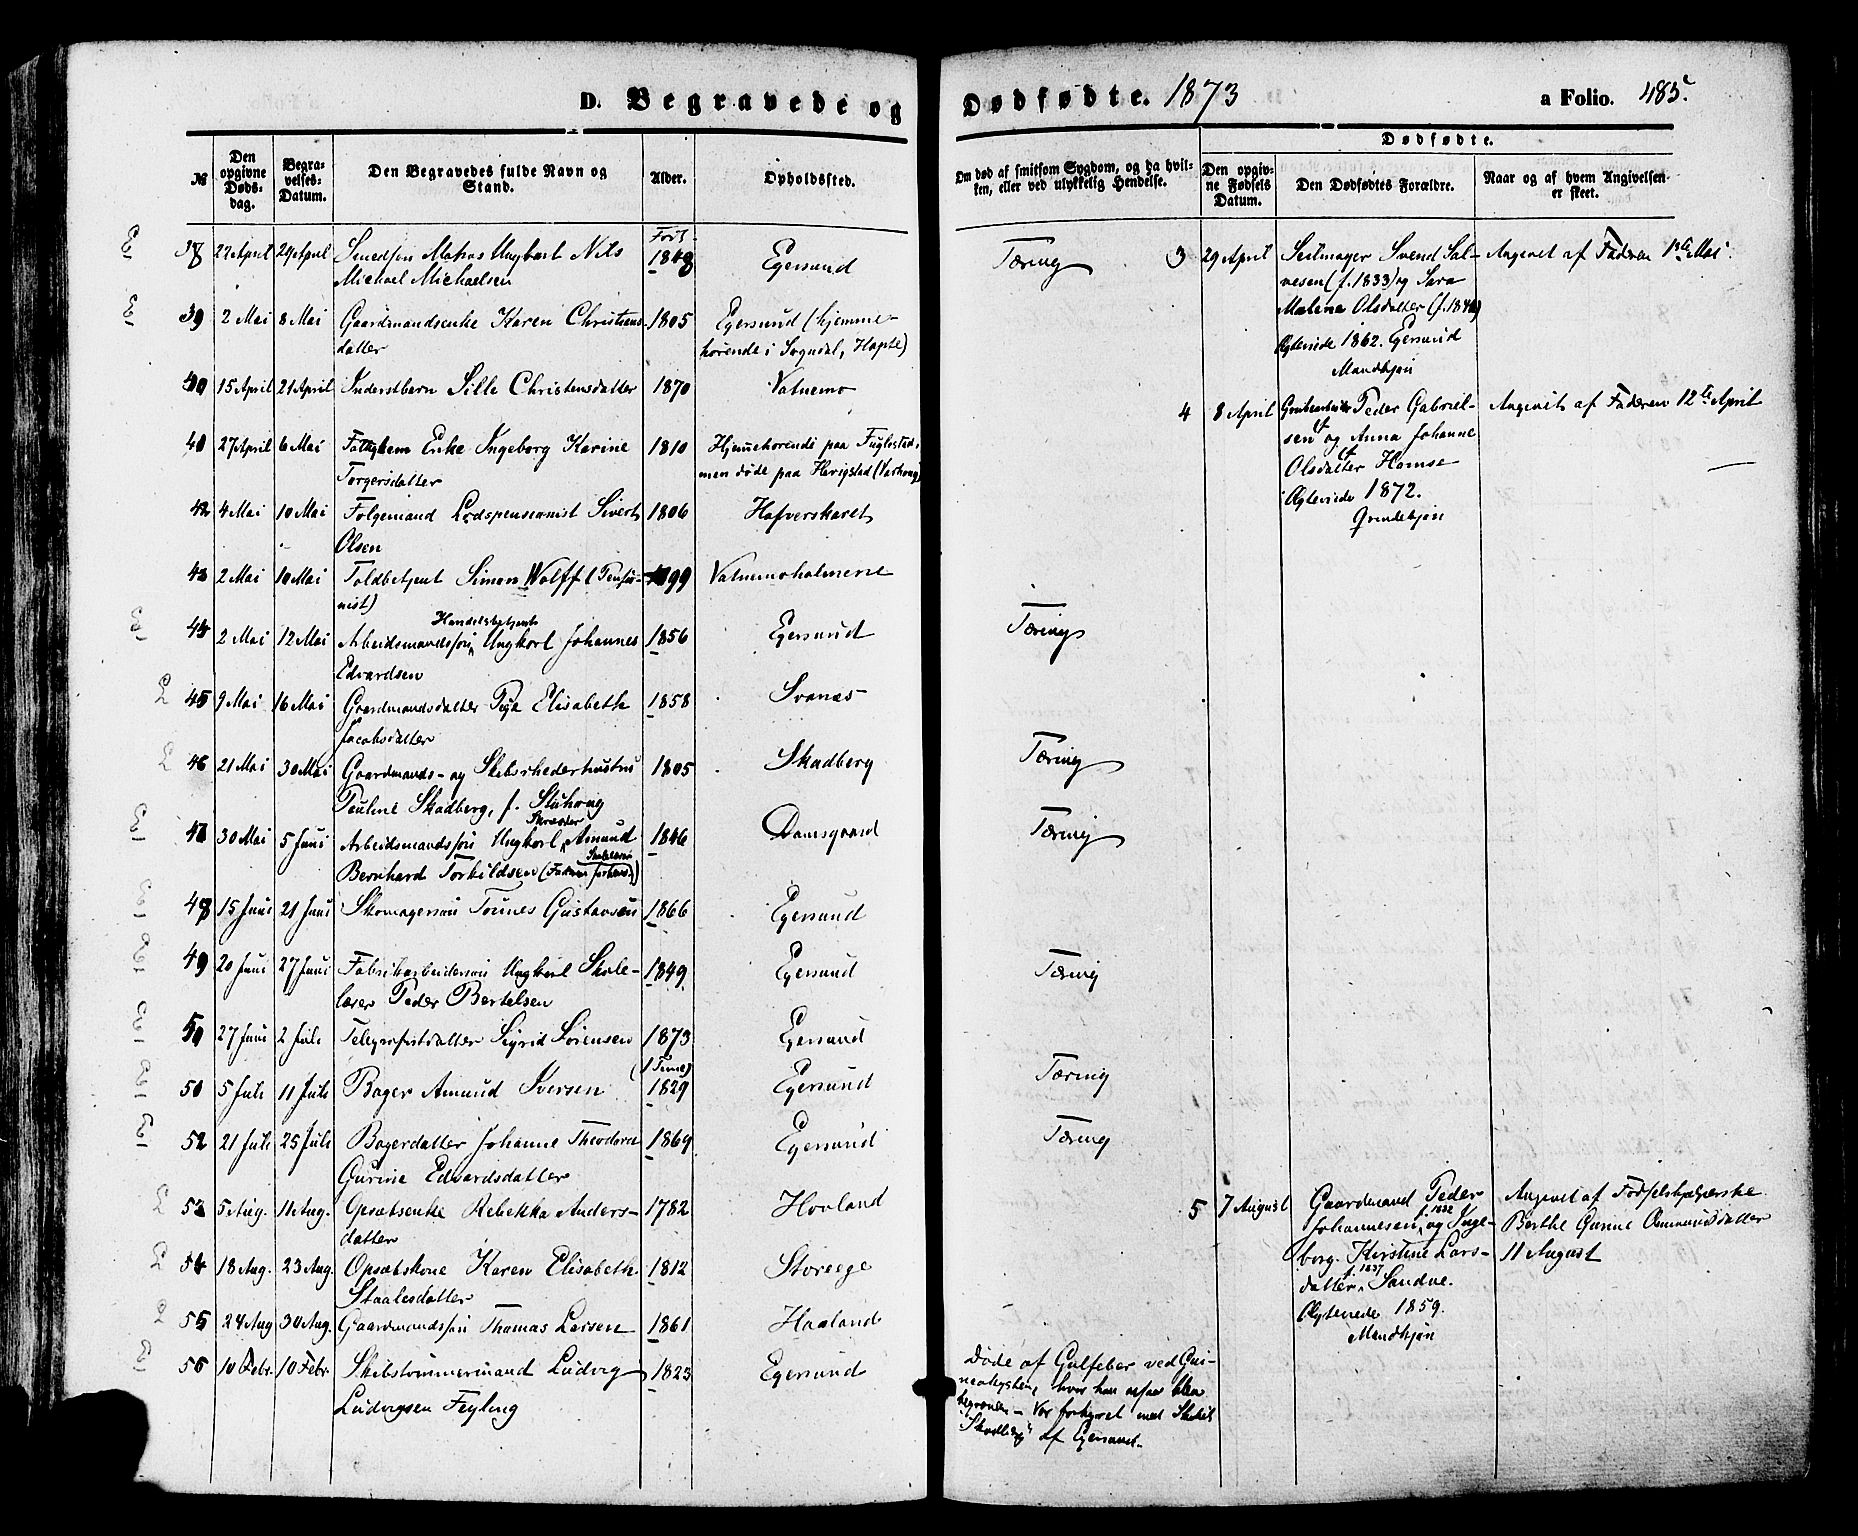 D. Begravede og Dødfødte. 1873 a Folio. 485.
№
Den opgivne Døds-dag.
Begra-velses-Datum.
Den Begravedes fulde Navn og Stand.
Alder.
Opholdssted.
Om død af smitsom Sygdom, og da hvil-
ken, eller ved ulykkelig Hendelse.
Dødfødte.
Den opgiv-ne Fødsels Datum.
Den Dødfødtes Forældre.
Naar og af hvem Angivelsen er skeet.
E 38 22 April 29 April Smedsøn Matros Ungkarl Nils Født 1848 Egersund Tæring
Michael Michaelsen
E 39 2 Mai 8 Mai Gaardmandsenke Karen Christens- 1805 Egersund (hjemme-
datter hørende i Sogndal,
40 15 April 21 April Inderstbarn Sille Christensdatter 1870 Vatnemo
41 27 April 6 Mai Fattiglem Enke Ingeborg Karine 1810 Hjemmehørende paa Fuglestad,
Torgersdatter men døde paa
42 4 Mai 10 Mai Følgemand Lodspensionist Sivert 1806 Hafverskaret
Olsen
43 2 Mai 10 Mai Toldbetjent Simon Wolff (Pensio- 1799 Vatnemoholmene
nist)
E 44 2 Mai 12 Mai Arbeidsmandssøn, Handelsbetjent Ungkarl Johannes 1856 Egersund Tæring
Edvardsen
L 45 9 Mai 16 Mai Gaardmandsdatter Elisabeth 1858 Svanes
Jacobsdatter
L 46 21 Mai 30 Mai Gaardmands- og Skibsrhederhustru 1805 Skadberg Tæring
Pauline Skadberg, f. Stuhoug
E 47 30 Mai 5 Juni Arbeidsmandssøn Ungkarl, Skræder Amund 1846 Damsgaard Tæring
Bernhard Torkildsen (Faderen
E 48 15 Juni 21 Juni Skomagersøn Tønnes Gustavsen 1866 Egersund
E 49 20 Juni 27 Juni Fabrikarbeidersøn Ungkarl Skole- 1849 Egersund Tæring
lærer Peder Bertelsen
E 50 27 Juni 2 Juli Telegrafistdatter Sigrid Sørensen 1873 Egersund
(1 Time)
E 51 5 Juli 11 Juli Bager Amund Iversen 1829 Egersund Tæring
E 52 21 Juli 25 Juli Bagerdatter Johanne Theodora 1869 Egersund Tæring
Gurine Edvardsdatter
L 53 5 Aug. 11 Aug. Opsætsenke Rebekka Anders- 1782 Hovland
datter
L 54 18 Aug. 23 Aug. Opsætskone Karen Elisabeth 1812 Storeege
Staalesdatter
L 55 24 Aug 30 Aug. Gaardmandssøn Thomas Larsen 1861 Haaland
E 56 10 Febr. 10 Febr. Skibstømmermand Ludvig 1823 Egersund
Ludvigsen Feyling
Døde af Gulfeber ved Gui-
neakysten, hvor han ogsaa blev
begraven - Var forhyret med Skibet
"Skadberg" af Egersund.
3 29 April Seilmager Svend Sal- Angivet af Faderen 1ste Mai.
vesen (f. 1833) og Sara
Malena Olsdatter
Ægteviede 1862. Egersund
Mandkjøn
4 8 April Peder Gabriel- Angivet af Faderen 12te April
sen og Anna Johanne
Olsdatter Hamse
Ægteviede 1872.
Qvindekjøn
5 7 August Gaardmand Peder Angivet af Fødselshjælperske
Johannesen, f. 1832 og Inge- Berthe Gurine Ommundsdatter
borg Kirstine Lars- 11 August
datter, f. 1837 Sandve.
Ægteviede 1859.
Mandkjøn